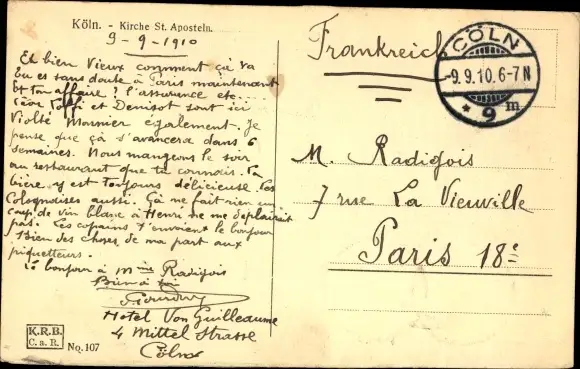 Köln. - Kirche St. Aposteln.
9-9-1910
Eh bien Vieux comment ça va
tu es sans doute à Paris maintenant
Et ton affaire ? l'assurance etc....
et Denisot sont ici
Mornier également. Je
pense que çà s'avancera dans 6
semaines. Nous mangeons le soir
au restaurant que tu connais. La
bière y est toujours délicieuse. Les
Colognoises aussi. Çà ne fait rien un
coup de vin blanc à Henri ne me déplairait
pas. Les copains t'envoient le bonjour
Bien des choses de ma part aux
piquetteurs.
Le bonjour à Mme Radigois
Bien à toi
Hotel Von Guilleaume
4 Mittel Strasse
Cöln
K.R.B.
C. a. R.
No. 107
Frankreich
CÖLN
9.9.10.6-7N
* 9 m
M. Radigois
7 rue La Vieuville
Paris 18e